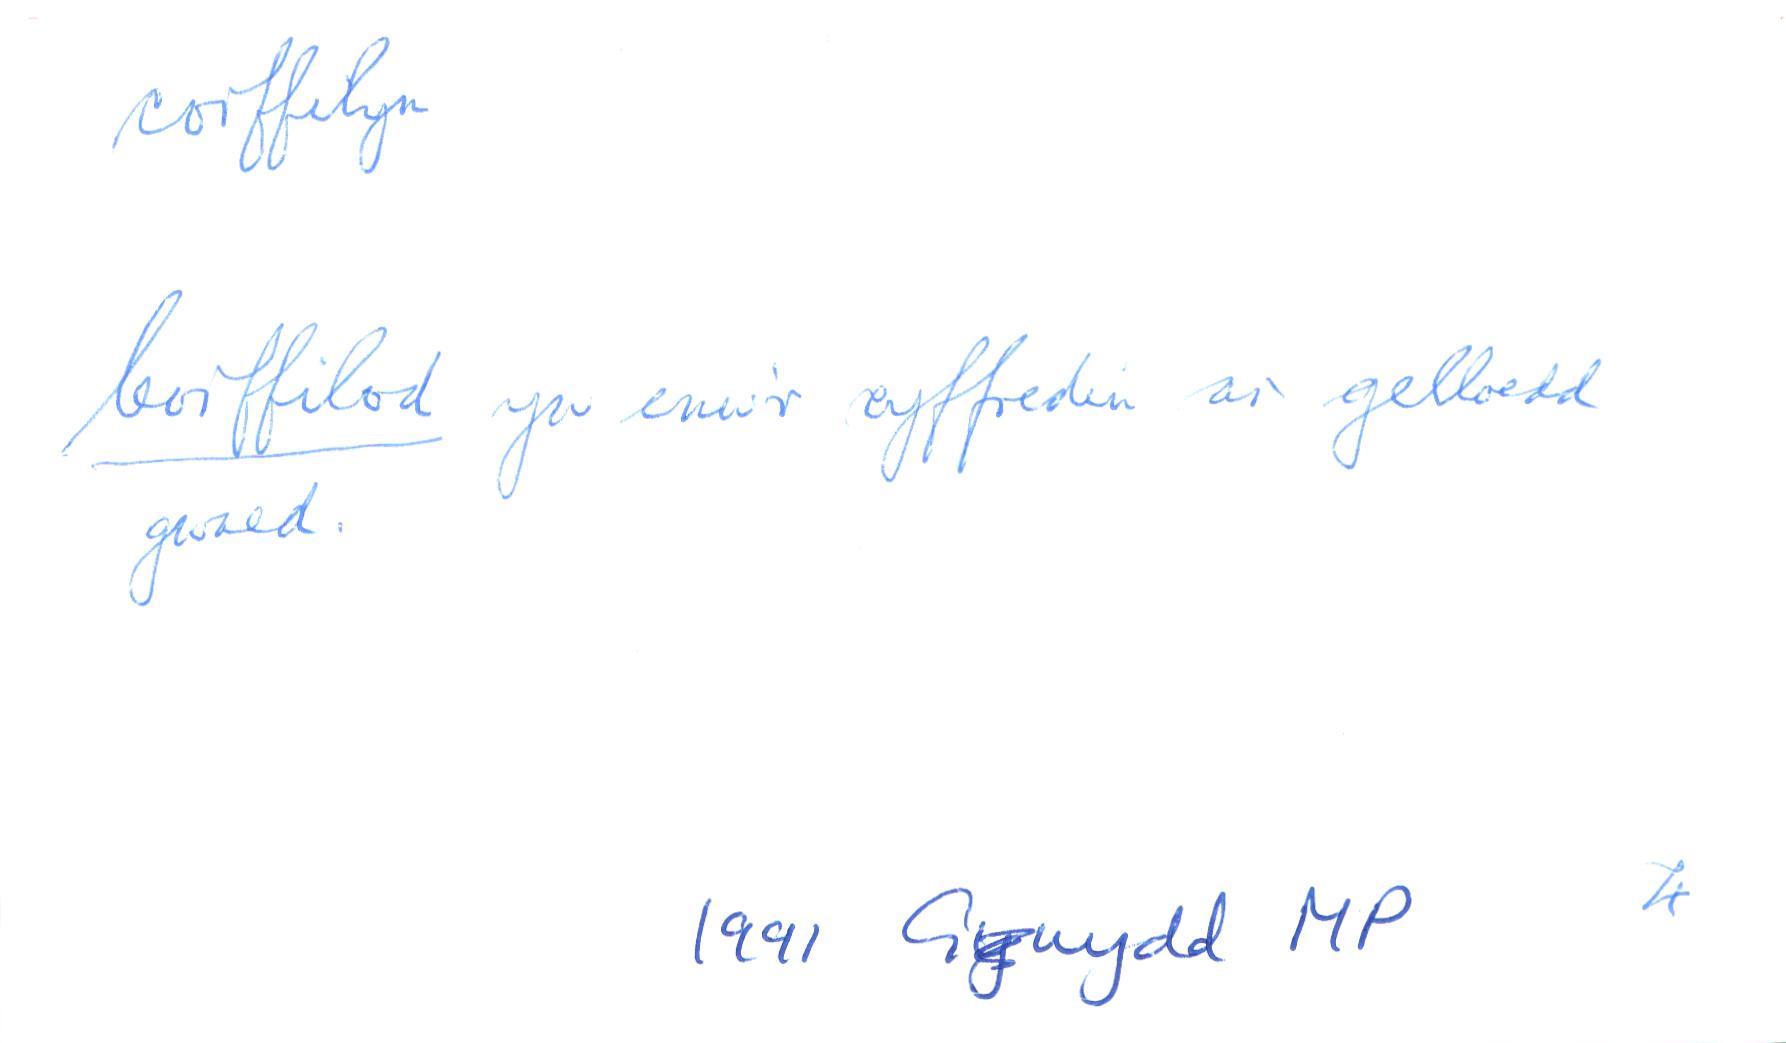 corffilyn
Corffilod yw enw'r cyffredin ar gelloedd
gwaed.
1991 MP
74